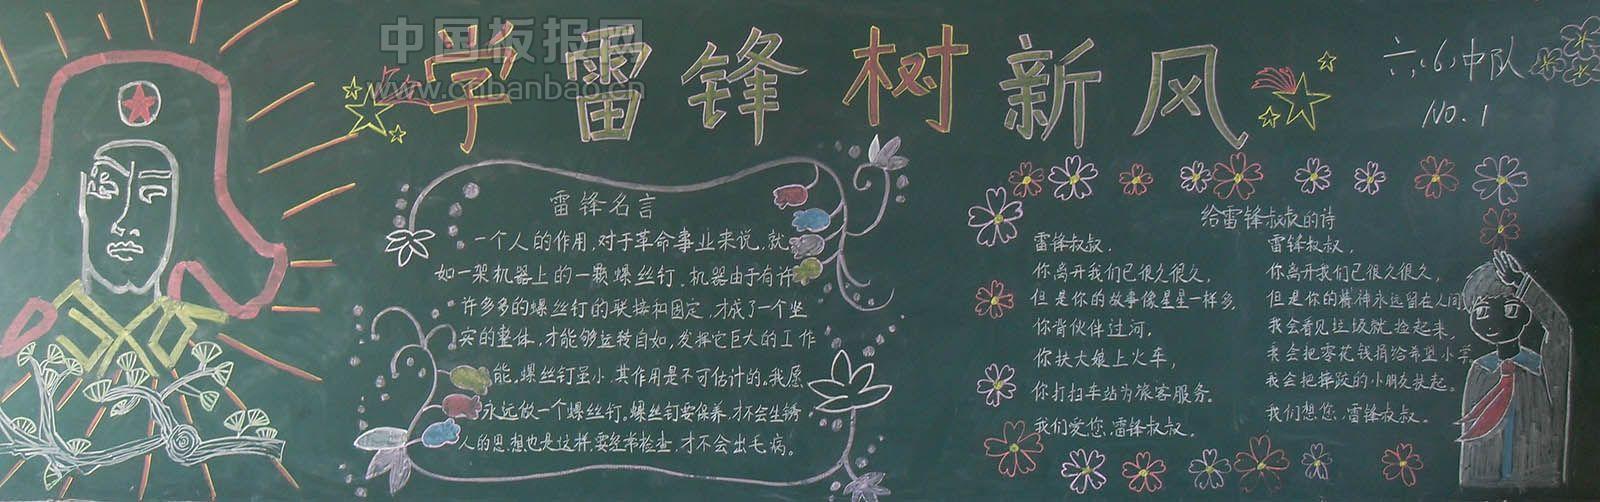 中国板报网
www.cnbanbao.cn
学雷锋树新风
六(6)中队
NO.1
雷锋名言
一个人的作用,对于革命事业来说,就
如一架机器上的一颗螺丝钉。机器由于有许
许多多的螺丝钉的联接和固定,才成了一个坚
实的整体,才能够运转自如,发挥它巨大的工作
能。螺丝钉虽小,其作用是不可估计的。我愿
永远做一个螺丝钉。螺丝钉要保养,才不会生锈,
人的思想也是这样,要经常检查,才不会出毛病。
给雷锋叔叔的诗
雷锋叔叔,
你离开我们已很久很久,
但是你的故事像星星一样多,
你背伙伴过河,
你扶大娘上火车,
你打扫车站为旅客服务。
我们爱您,雷锋叔叔。
雷锋叔叔,
你离开我们已很久很久,
但是你的精神永远留在人间
我会看见垃圾就捡起来,
我会把零花钱捐给希望小学
我会把摔跤的小朋友扶起。
我们想您,雷锋叔叔。